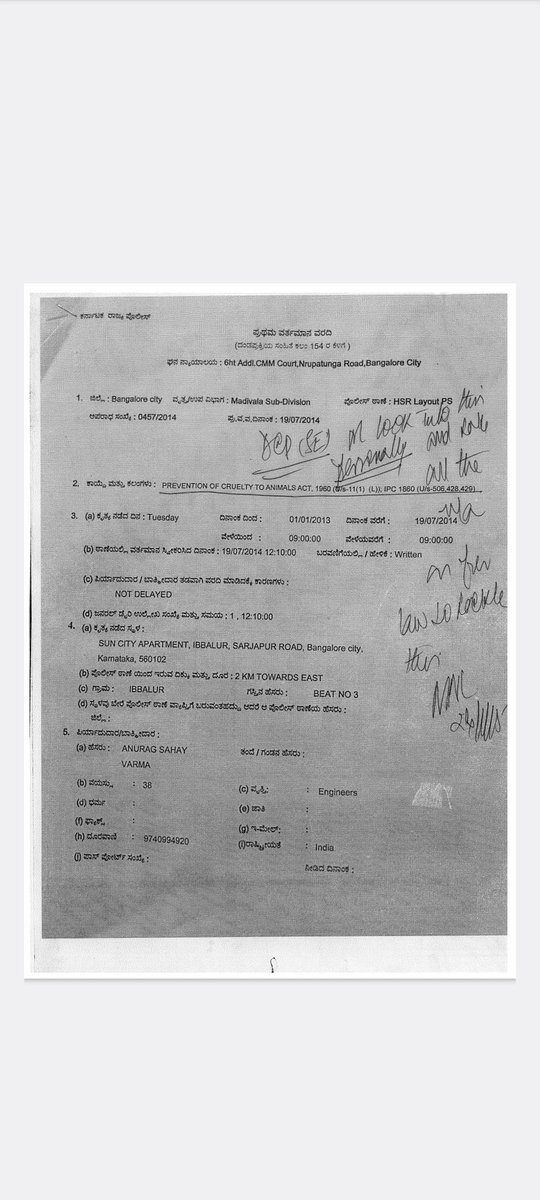 ಕರ್ನಾಟಕ ರಾಜ್ಯ ಪೊಲೀಸ್
ಪ್ರಥಮ ವರ್ತಮಾನ ವರದಿ
(ದಂಡಪ್ರಕ್ರಿಯ ಸಂಹಿತೆ ಕಲಂ 154 ರ ಕೆಳಗೆ )
ಘನ ನ್ಯಾಯಾಲಯ : 6ht Addl.CMM Court,Nrupatunga Road,Bangalore City
1. ಜಿಲ್ಲೆ : Bangalore city ವೃತ್ತ/ಉಪ ವಿಭಾಗ : Madivala Sub-Division ಪೊಲೀಸ್ ಠಾಣೆ : HSR Layout PS
ಅಪರಾಧ ಸಂಖ್ಯೆ : 0457/2014 ಪ್ರ.ವ.ವ.ದಿನಾಂಕ : 19/07/2014
DCP (SE) Pl look into this
personally and take
all the
2. ಕಾಯ್ದೆ ಮತ್ತು ಕಲಂಗಳು : PREVENTION OF CRUELTY TO ANIMALS ACT, 1960 (U/s-11(1) (L)); IPC 1860 (U/s-506,428,429)
3. (a) ಕೃತ್ಯ ನಡೆದ ದಿನ : Tuesday ದಿನಾಂಕ ದಿಂದ : 01/01/2013 ದಿನಾಂಕ ವರೆಗೆ : 19/07/2014
ವೇಳೆಯಿಂದ : 09:00:00 ವೇಳೆಯವರೆಗೆ : 09:00:00
(b) ಠಾಣೆಯಲ್ಲಿ ವರ್ತಮಾನ ಸ್ವೀಕರಿಸಿದ ದಿನಾಂಕ : 19/07/2014 12:10:00 ಬರವಣಿಗೆಯಲ್ಲಿ / ಹೇಳಿಕೆ : Written
(c) ಪಿರ್ಯಾದುದಾರ / ಬಾತ್ಮೀದಾರ ತಡವಾಗಿ ವರದಿ ಮಾಡಿದಕ್ಕೆ ಕಾರಣಗಳು :
NOT DELAYED
(d) ಜನರಲ್ ಡೈರಿ ಉಲ್ಲೇಖ ಸಂಖ್ಯೆ ಮತ್ತು ಸಮಯ : 1 , 12:10:00
4. (a) ಕೃತ್ಯ ನಡೆದ ಸ್ಥಳ :
SUN CITY APARTMENT, IBBALUR, SARJAPUR ROAD, Bangalore city,
Karnataka, 560102
this
(b) ಪೊಲೀಸ್ ಠಾಣೆ ಯಿಂದ ಇರುವ ದಿಕ್ಕು ಮತ್ತು ದೂರ : 2 KM TOWARDS EAST
(c) ಗ್ರಾಮ : IBBALUR ಗಸ್ತಿನ ಹೆಸರು : BEAT NO 3
(d) ಸ್ಥಳವು ಬೇರೆ ಪೊಲೀಸ್ ಠಾಣೆ ವ್ಯಾಪ್ತಿಗೆ ಬರುವಂತಹದ್ದು ಆದರೆ ಆ ಪೊಲೀಸ್ ಠಾಣೆಯ ಹೆಸರು :
ಜಿಲ್ಲೆ :
5. ಪಿರ್ಯಾದುದಾರ/ಬಾತ್ಮೀದಾರ :
(a) ಹೆಸರು : ANURAG SAHAY ತಂದೆ / ಗಂಡನ ಹೆಸರು :
VARMA
(b) ವಯಸ್ಸು : 38 (c) ವೃತ್ತಿ : Engineers
(d) ಧರ್ಮ : (e) ಜಾತಿ :
(f) ಫ್ಯಾಕ್ಸ್ : (g) ಇ-ಮೇಲ್ :
(h) ದೂರವಾಣಿ : 9740994920 (i)ರಾಷ್ಟ್ರೀಯತೆ : India
(j) ಪಾಸ್ ಪೋರ್ಟ್ ಸಂಖ್ಯೆ : ನೀಡಿದ ದಿನಾಂಕ :